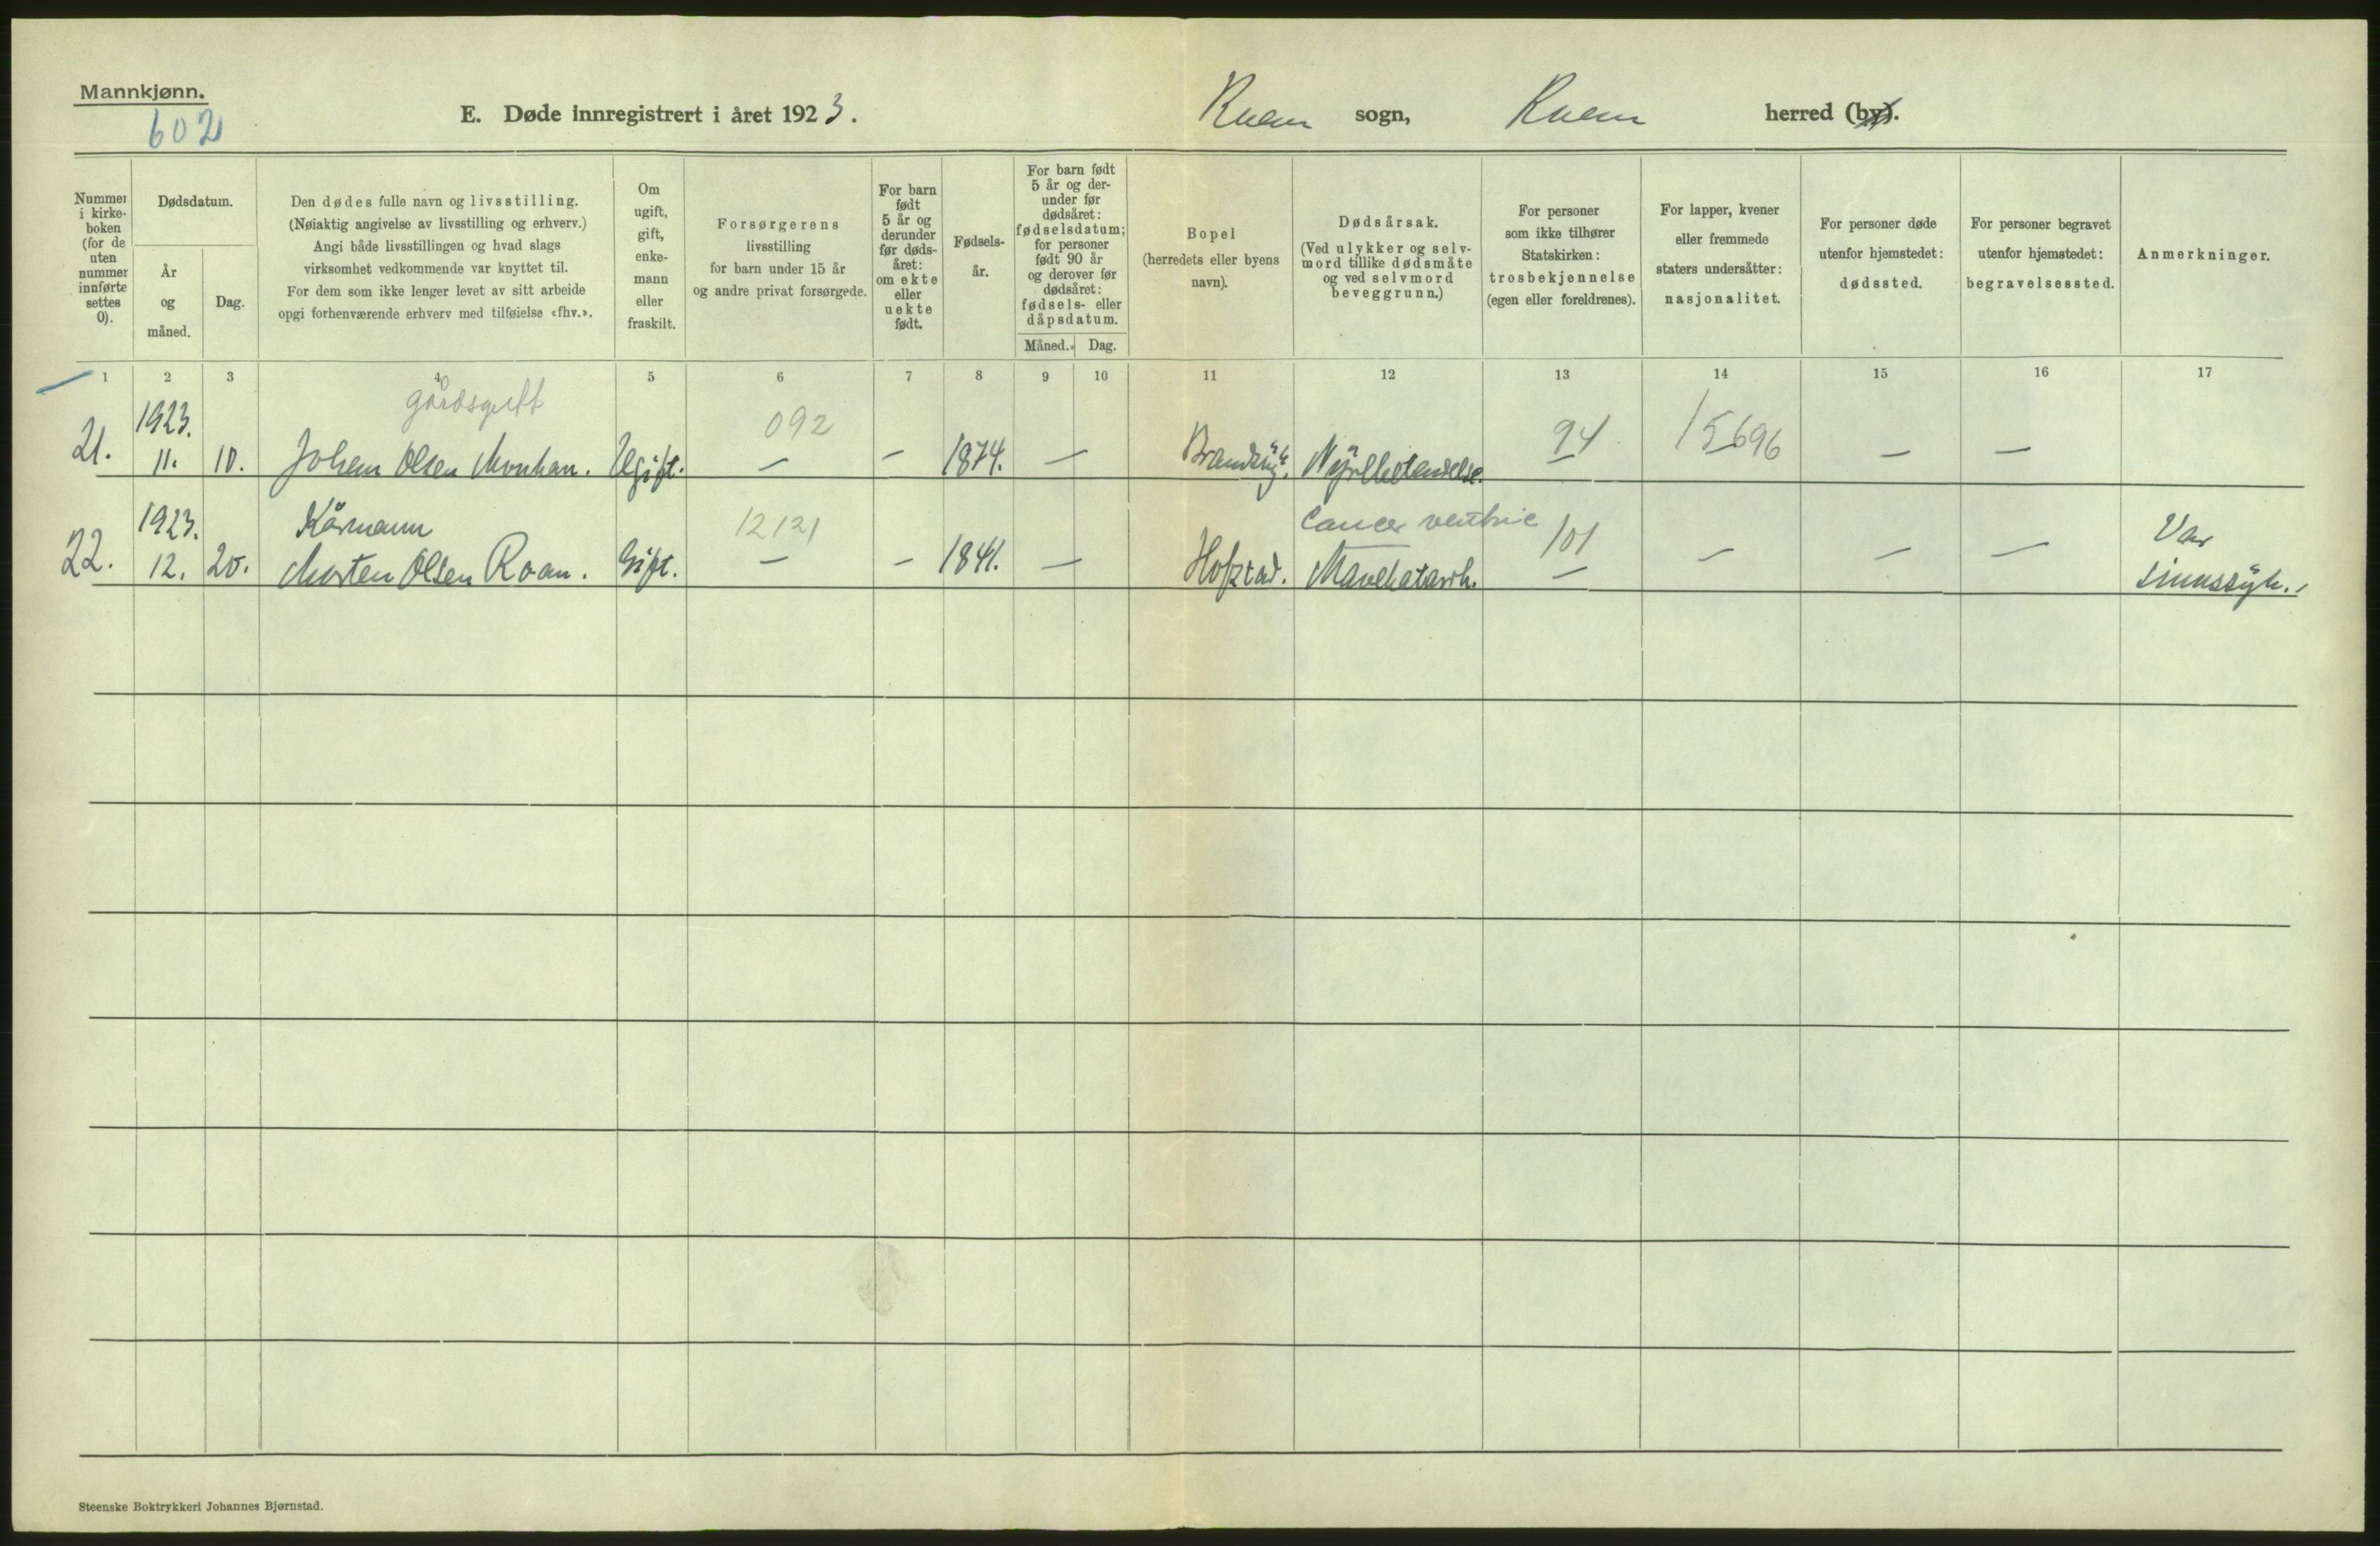 Mannkjønn.
602
E. Døde innregistrert i året 1923.
sogn,
herred (by).
Nummer i kirkeboken (for de uten nummer innførte settes 0).
Dødsdatum.
År og måned.
Dag.
Den dødes fulle navn og livsstilling.
(Nøiaktig angivelse av livsstilling og erhverv.)
Angi både livsstillingen og hvad slags
virksomhet vedkommende var knyttet til.
For dem som ikke lenger levet av sitt arbeide
opgi forhenværende erhverv med tilføielse «fhv.».
Om ugift, gift, enkemann eller fraskilt.
Forsørgerens
livsstilling
for barn under 15 år
og andre privat forsørgede.
For barn født 5 år og derunder før dødsåret: om ekte eller uekte født.
Fødselsår.
For barn født 5 år og derunder før dødsåret: fødselsdatum; for personer født 90 år og derover før dødsåret: fødsels- eller dåpsdatum.
Måned.
Dag.
Bopel
(herredets eller byens
navn).
Dødsårsak.
(Ved ulykker og selvmord tillike dødsmåte og ved selvmord beveggrunn.)
For personer
som ikke tilhører
Statskirken:
trosbekjennelse
(egen eller foreldrenes).
For lapper, kvener
eller fremmede
staters undersåtter:
nasjonalitet.
For personer døde
utenfor hjemstedet:
dødssted.
For personer begravet
utenfor hjemstedet:
begravelsessted.
Anmerkninger.
1 2 3 4 5 6 7 8 9 10 11 12 13 14 15 16 17
21. 1923. 11. 10. Johan Olsen Ugift. 092 — — 1874. — Nyrebetendelse. 94 — 15696 — —
22. 1923. 12. 20. Kårmann
Morten Olsen Roan. Gift. 12121 — — 1841. — Hofstad. Cancer ventric
Mavekatarrh. 101 — — — — Var
sinnssyk.
Steenske Boktrykkeri Johannes Bjørnstad.